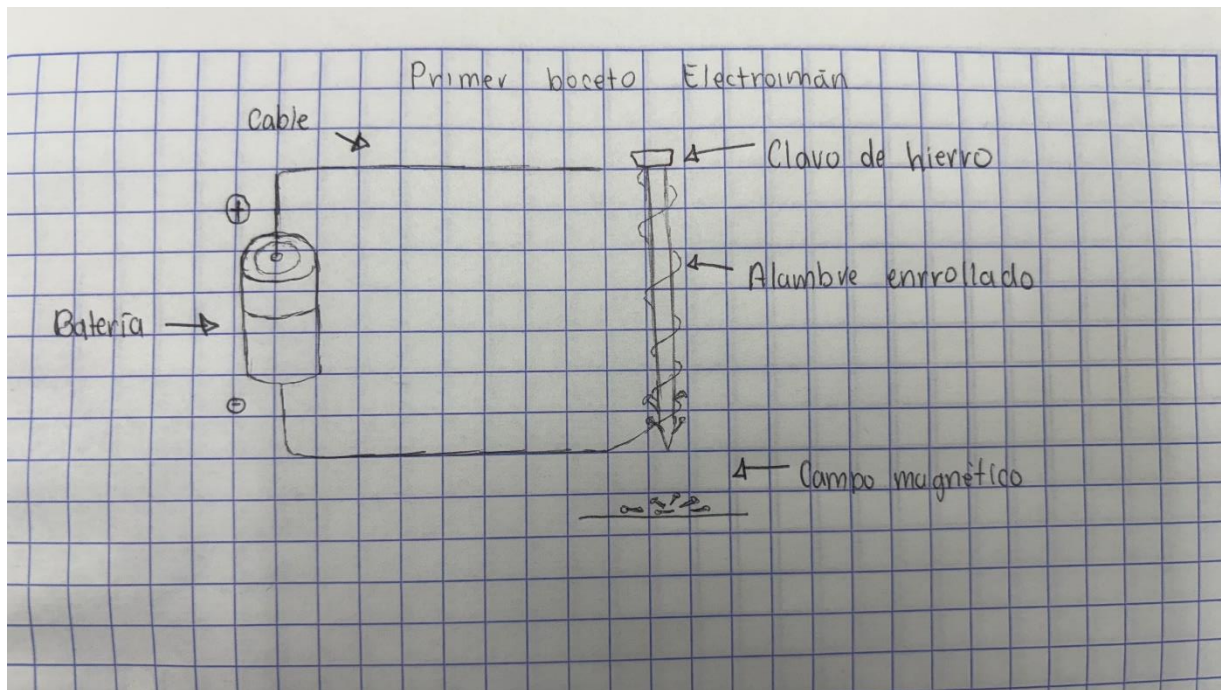 Primer boceto Electroimán
Cable
Clavo de hierro
+
Alambre enrrollado
Batería
-
Campo magnético